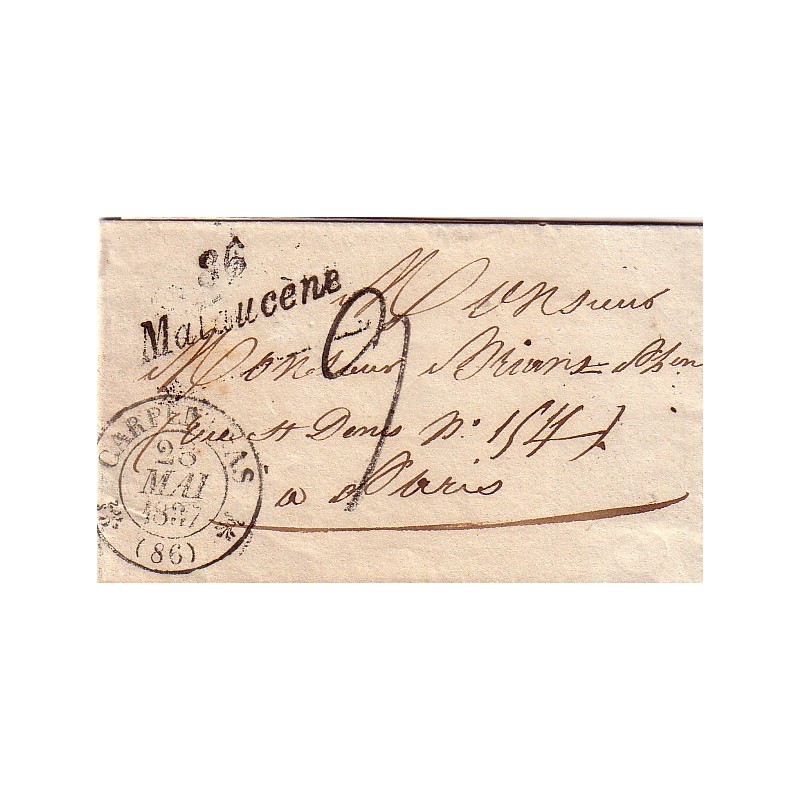 86
Malaucène
9
Monsieur
Monsieur Briant
rue St Denis N° 154
à Paris
CARPENTRAS
25
MAI
1837
(86)